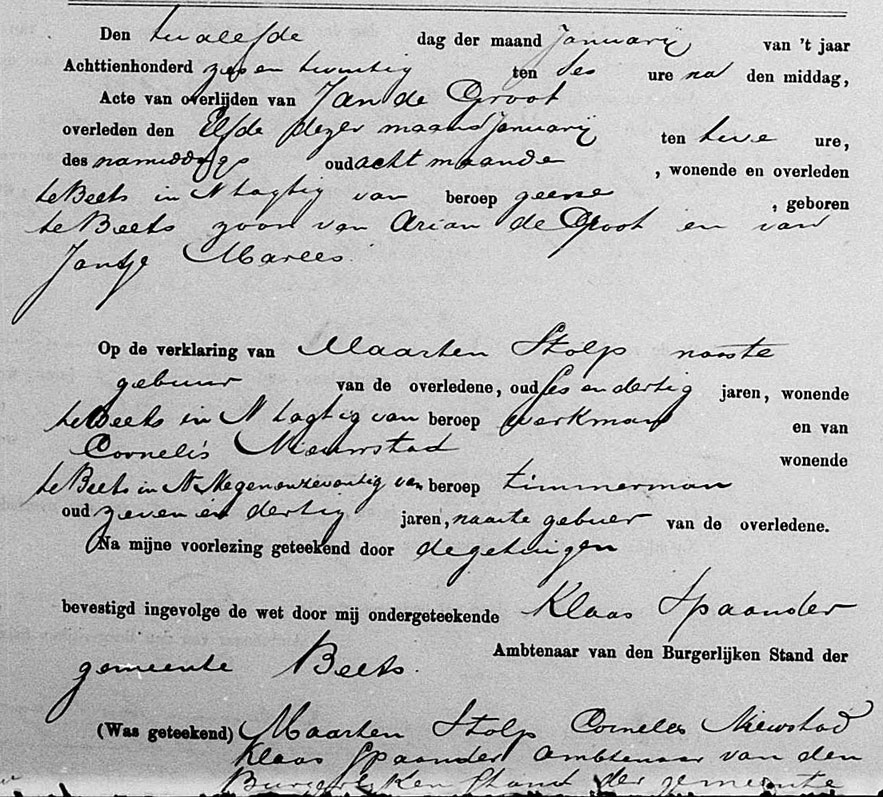 Den twaalfde dag der maand Januarij van 't jaar
Achttienhonderd zes en twintig ten zes ure na den middag,
Acte van overlijden van Jan de Groot
overleden den Elfde dezer maand Januarij ten twe ure,
des namiddags oud acht maande , wonende en overleden
te Beets in N tagtig van beroep geene , geboren
te Beets zoon van Arian de Groot en van
Jantje Marees.
Op de verklaring van Maarten Stolp naaste
gebuur van de overledene, oud ses en dertig jaren, wonende
te Beets in N tagtig van beroep werkman en van
Cornelis Nieuwstad wonende
te Beets in N Negenenzeventig van beroep timmerman
oud zeven en dertig jaren, naaste gebuer van de overledene.
Na mijne voorlezing geteekend door de getuigen
bevestigd ingevolge de wet door mij ondergeteekende Klaas Spaander
Ambtenaar van den Burgerlijken Stand der
gemeente Beets.
(Was geteekend) Maarten Stolp Cornelis Niewstad
Klaas Spaander Ambtenaar van den
Burgerlijken Stand der gemeente